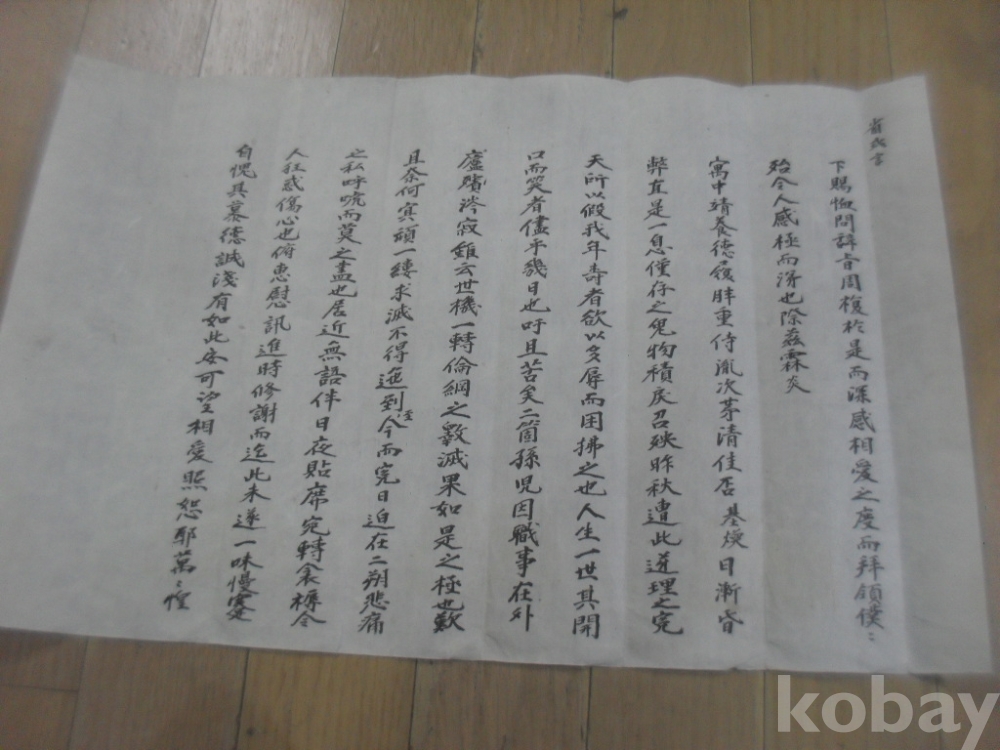 省式言
下賜恤問辞旨周複於是而深感相愛之度而拜領僕〻
殆令人感極而涕也除玆霖炎
寓中靖養德履胖重侍胤次茅清佳否基煥日漸昏
弊直是一息僅存之鬼物積戾召殃昨秋遭此逆理之寃
天所以假我年壽者欲以多辱而困拂之也人生一世其開
口而笑者儘乎幾日也吁且苦矣二箇孫兒因職事在外
廬階涔寂雖云世機一轉倫綱之斁滅果如是之極也歎
且奈何冥頑一縷求滅不得迤到今而寃日迫在二朔悲痛
之私呼吭而莫之盡也居近無語伴日夜貼席宛轉衾褥令
人狂惑傷心也俯惠慰訊進時修謝而迄此未遂一味慢寔
自愧其慕德誠淺有如此安可望相愛照恕耶萬〻惶
kobay